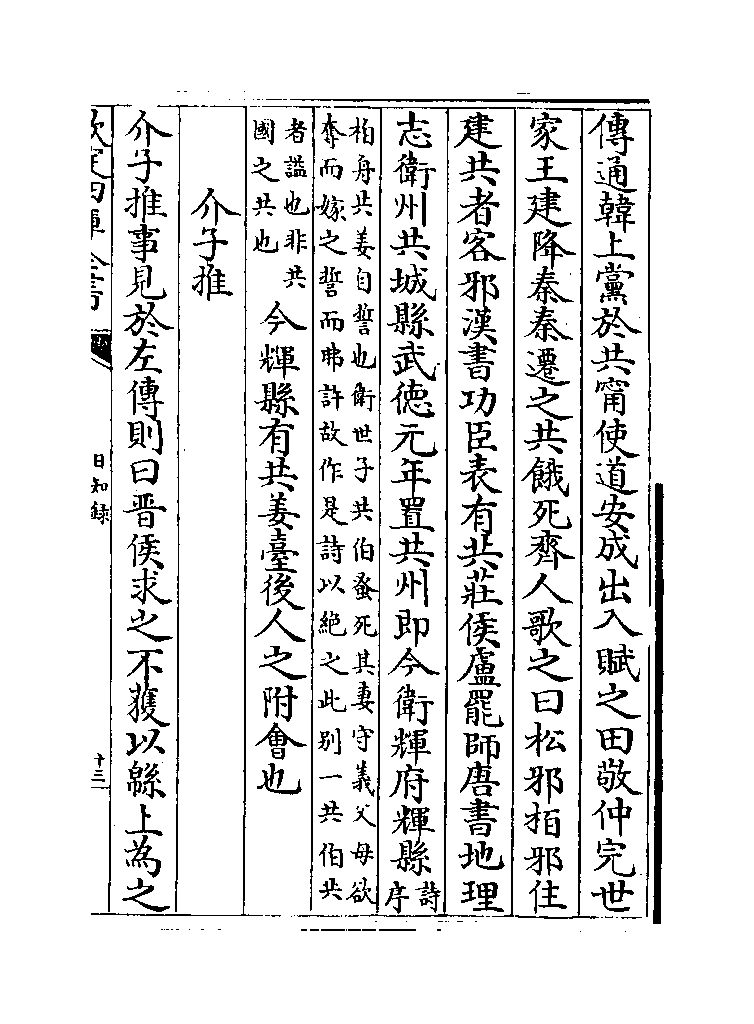 傳通韓上黨於共甯使道安成出入賦之田敬仲完世
家王建降秦秦遷之共餓死齊人歌之曰松邪栢邪住
建共者客邪漢書功臣表有共莊侯盧罷師唐書地理
志衛州共城縣武德元年置共州即今衛輝府輝縣詩
序
柏舟共姜自誓也衛世子共伯蚤死其妻守義父母欲
奪而嫁之誓而弗許故作是詩以絶之此别一共伯共
者諡也非共
國之共也
今輝縣有共姜臺後人之附會也
介子推
介子推事見於左傳則曰晋侯求之不獲以緜上為之
欽定四庫全書
日知錄
十三